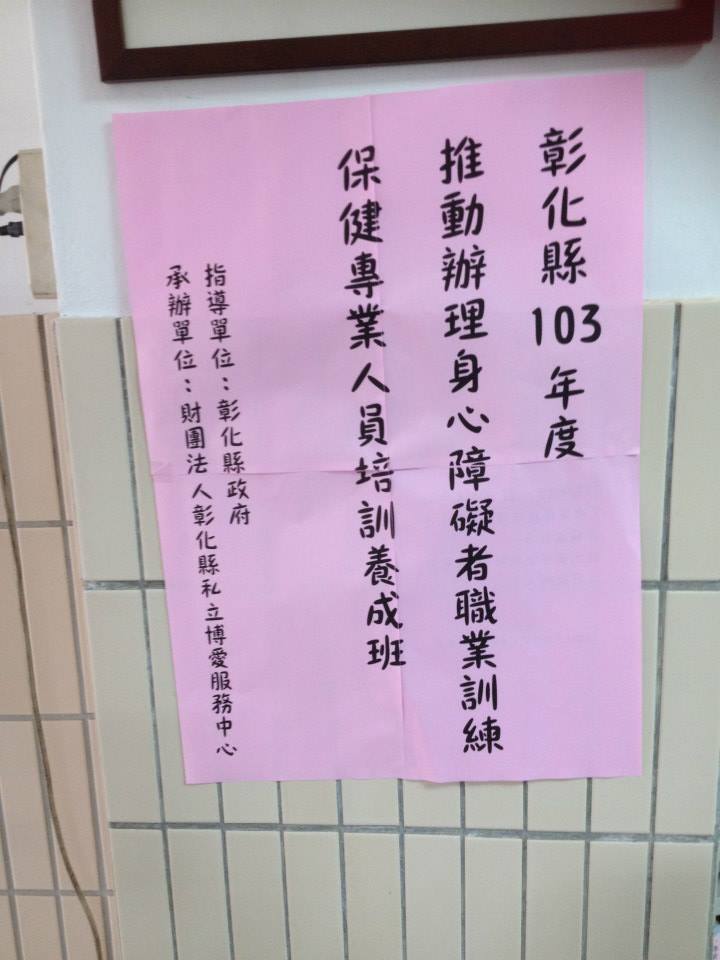 彰化縣103年度
推動辦理身心障礙者職業訓練
保健專業人員培訓養成班
指導單位：彰化縣政府
承辦單位：財團法人彰化縣私立博愛服務中心